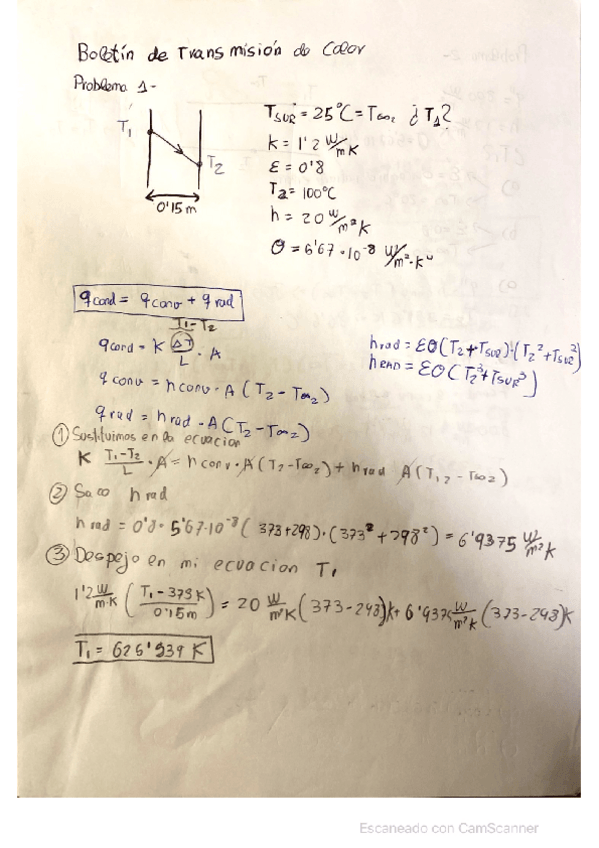 Boletín de Transmisión de Calor
Problema 1-
T1
T2
0'15 m
TSUR = 25°C = T∞2 ¿T1?
k = 1'2 W/mK
ε = 0'8
T2 = 100°C
h = 20 W/m²K
σ = 6'67·10⁻⁸ W/m²·K⁴
qcond = qconv + qrad
T1-T2
qcond = K ΔT/L · A
qconv = hconv · A (T2 - T∞2)
qrad = hrad · A (T2 - T∞2)
hrad = εσ(T2 + TSUR)·(T2² + TSUR²)
hrad = εσ(T2³ + TSUR³)
① Sustituimos en la ecuacion
K T1-T2/L · A = hconv · A (T2 - T∞2) + hrad A (T1,2 - T∞2)
② Saco hrad
hrad = 0'8 · 5'67·10⁻⁸ (373+298)·(373² + 298²) = 6'9375 W/m²K
③ Despejo en mi ecuacion T1
1'2 W/m·K (T1 - 373K/0'15m) = 20 W/m²K (373-298)K + 6'9375 W/m²K (373-298)K
T1 = 625'939 K
Escaneado con CamScanner